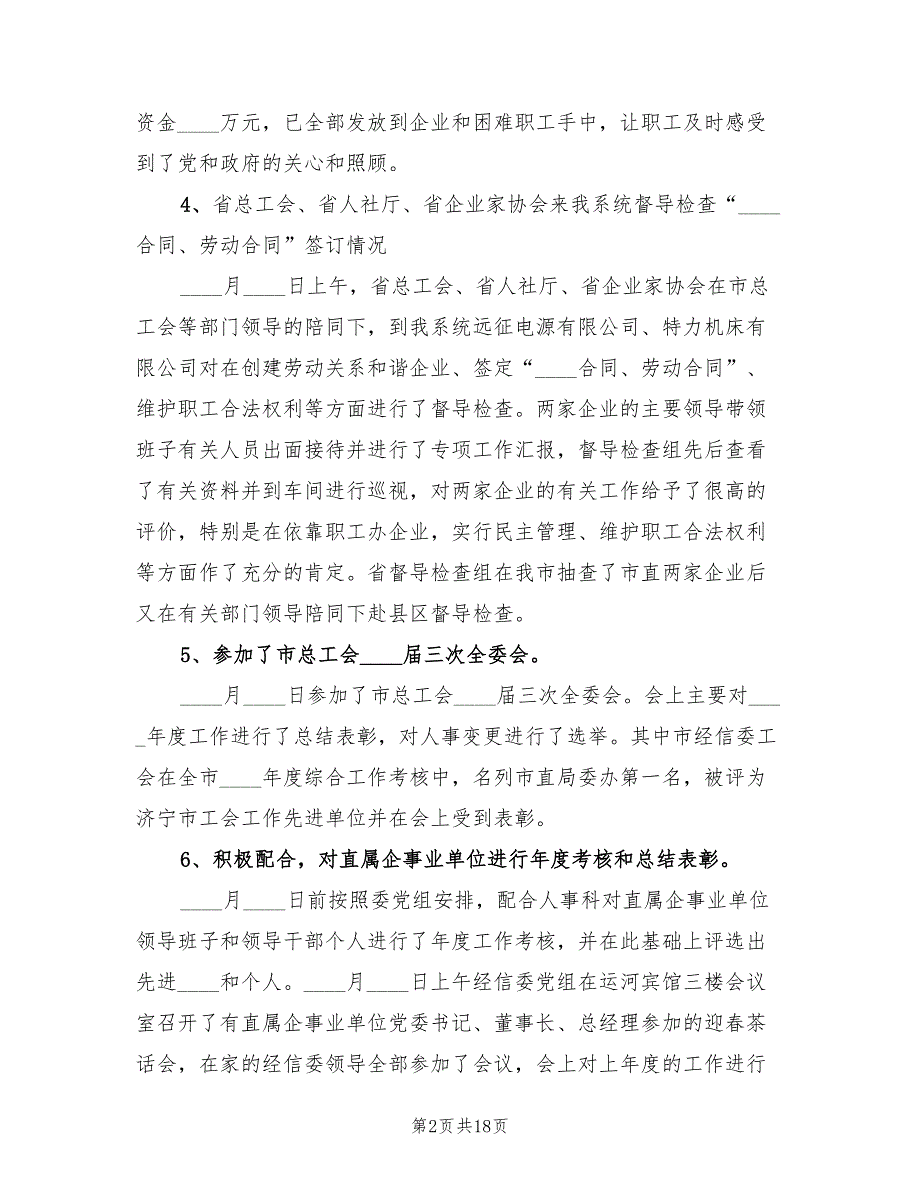 资金____万元，已全部发放到企业和困难职工手中，让职工及时感受
到了党和政府的关心和照顾。
4、省总工会、省人社厅、省企业家协会来我系统督导检查“____
合同、劳动合同”签订情况
____月____日上午，省总工会、省人社厅、省企业家协会在市总
工会等部门领导的陪同下，到我系统远征电源有限公司、特力机床有
限公司对在创建劳动关系和谐企业、签定“____合同、劳动合同”、
维护职工合法权利等方面进行了督导检查。两家企业的主要领导带领
班子有关人员出面接待并进行了专项工作汇报，督导检查组先后查看
了有关资料并到车间进行巡视，对两家企业的有关工作给予了很高的
评价，特别是在依靠职工办企业，实行民主管理、维护职工合法权利
等方面作了充分的肯定。省督导检查组在我市抽查了市直两家企业后
又在有关部门领导陪同下赴县区督导检查。
5、参加了市总工会____届三次全委会。
____月____日参加了市总工会____届三次全委会。会上主要对___
_年度工作进行了总结表彰，对人事变更进行了选举。其中市经信委工
会在全市____年度综合工作考核中，名列市直局委办第一名，被评为
济宁市工会工作先进单位并在会上受到表彰。
6、积极配合，对直属企事业单位进行年度考核和总结表彰。
____月____日前按照委党组安排，配合人事科对直属企事业单位
领导班子和领导干部个人进行了年度工作考核，并在此基础上评选出
先进____和个人。____月____日上午经信委党组在运河宾馆三楼会议
室召开了有直属企事业单位党委书记、董事长、总经理参加的迎春茶
话会，在家的经信委领导全部参加了会议，会上对上年度的工作进行
第2页共18页